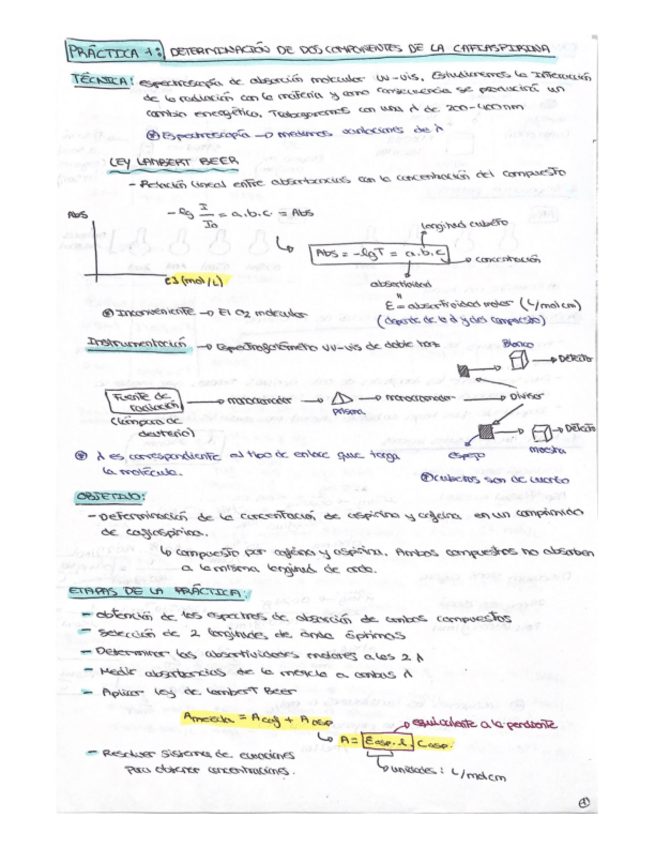 PRÁCTICA 1: DETERMINACIÓN DE DOS COMPONENTES DE LA CAFIASPIRINA
TÉCNICA: espectroscopía de absorción molecular UV-vis. Estudiaremos la interacción
de la radiación con la materia y como consecuencia se producirá un
cambio energético. Trabajaremos con una λ de 200-400nm
* Espectroscopía → medimos variaciones de λ
LEY LAMBERT BEER
- Relación lineal entre absorbancias con la concentración del compuesto
Abs
- lg I/I0 = a.b.c. = Abs
longitud cubeta
Abs = -lgT = a.b.c
concentración
absortividad
c] (mol/L)
"
E = absortividad molar (L/mol cm)
(depende de la λ y del compuesto)
* Inconveniente → El O2 molecular
Instrumentación → Espectrofotómetro UV-vis de doble haz
Blanco
→ Detector
Fuente de radiación → monocromador → prisma → monocromador → Divisor
(lámpara de deuterio)
→ Detector
espejo
muestra
* λ es correspondiente al tipo de enlace que tenga
la molécula.
* cubetas son de cuarzo
OBJETIVO:
- Determinación de la concentración de aspirina y cafeína en un comprimido
de cafiaspirina.
↳ compuesto por cafeína y aspirina. Ambos compuestos no absorben
a la misma longitud de onda.
ETAPAS DE LA PRÁCTICA:
- obtención de los espectros de absorción de ambos compuestos
- selección de 2 longitudes de onda óptimas
- Determinar las absortividades molares a las 2 λ
- Medir absorbancias de la mezcla a ambas λ
- Aplicar ley de lambert Beer
Amezcla = Acaf + Aasp
→ equivalente a la pendiente
↳ A = Easp. l. Casp.
- Resolver sistema de ecuaciones
para obtener concentraciones.
↳ unidades: L/mol cm
1